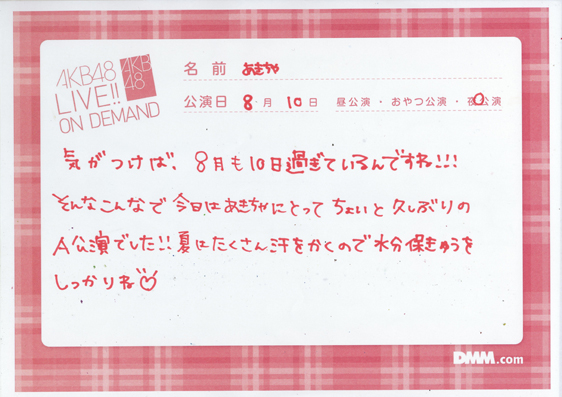 AKB48
LIVE!!
ON DEMAND
AKB
48
名前 あきちゃ
公演日 8月10日 昼公演・おやつ公演・夜公演
気がつけば、8月も10日過ぎているんですね!!!
そんなこんなで今日はあきちゃにとってちょいと久しぶりの
A公演でした!!夏はたくさん汗をかくので水分保きゅうを
しっかりね♡
DMM.com